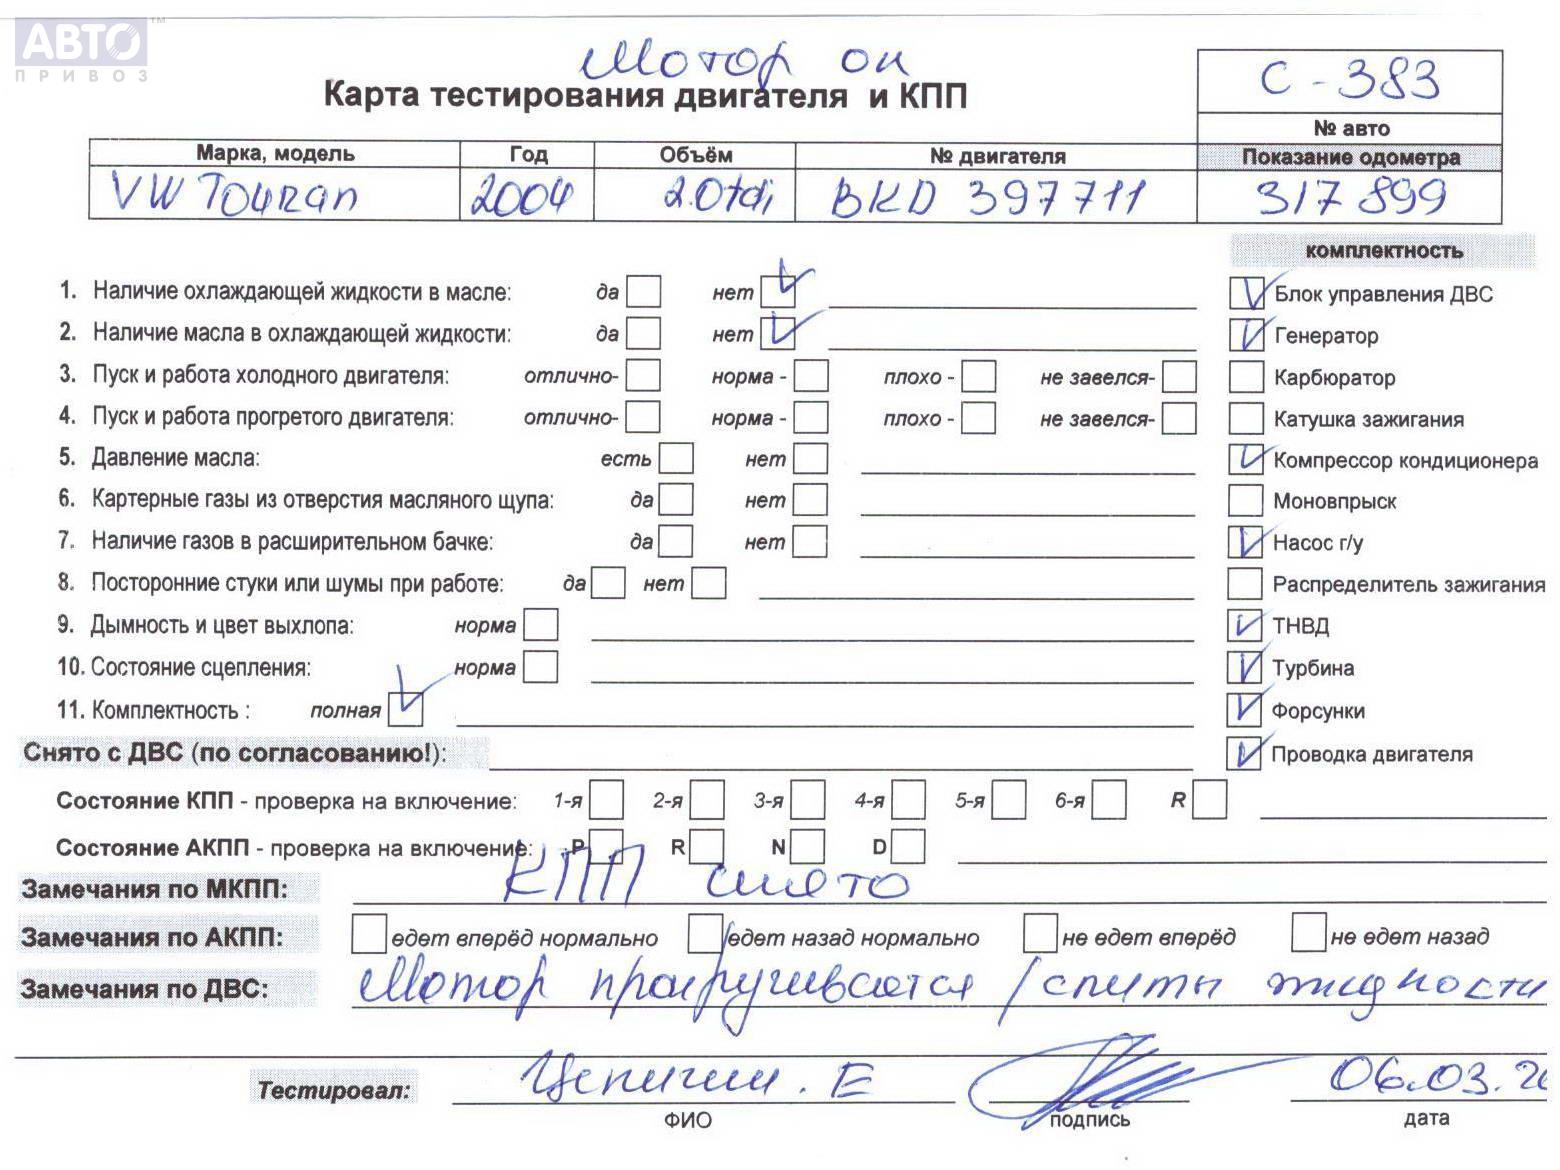 АВТО™
ПРИВОЗ
Мотор ок
Карта тестирования двигателя и КПП
С - 383
№ авто
Марка, модель Год Объём № двигателя Показание одометра
VW Touran 2004 2.0tdi BKD 397711 317 899
комплектность
1. Наличие охлаждающей жидкости в масле: да нет Блок управления ДВС
2. Наличие масла в охлаждающей жидкости: да нет Генератор
3. Пуск и работа холодного двигателя: отлично- норма - плохо - не завелся- Карбюратор
4. Пуск и работа прогретого двигателя: отлично- норма - плохо - не завелся- Катушка зажигания
5. Давление масла: есть нет Компрессор кондиционера
6. Картерные газы из отверстия масляного щупа: да нет Моновпрыск
7. Наличие газов в расширительном бачке: да нет Насос г/у
8. Посторонние стуки или шумы при работе: да нет Распределитель зажигания
9. Дымность и цвет выхлопа: норма ТНВД
10. Состояние сцепления: норма Турбина
11. Комплектность : полная Форсунки
Снято с ДВС (по согласованию!): Проводка двигателя
Состояние КПП - проверка на включение: 1-я 2-я 3-я 4-я 5-я 6-я R
Состояние АКПП - проверка на включение: P R N D
Замечания по МКПП: КПП снято
Замечания по АКПП: едет вперёд нормально едет назад нормально не едет вперёд не едет назад
Замечания по ДВС: Мотор прокручивается / слиты жидкости
Тестировал: Е 06.03.20
ФИО подпись дата